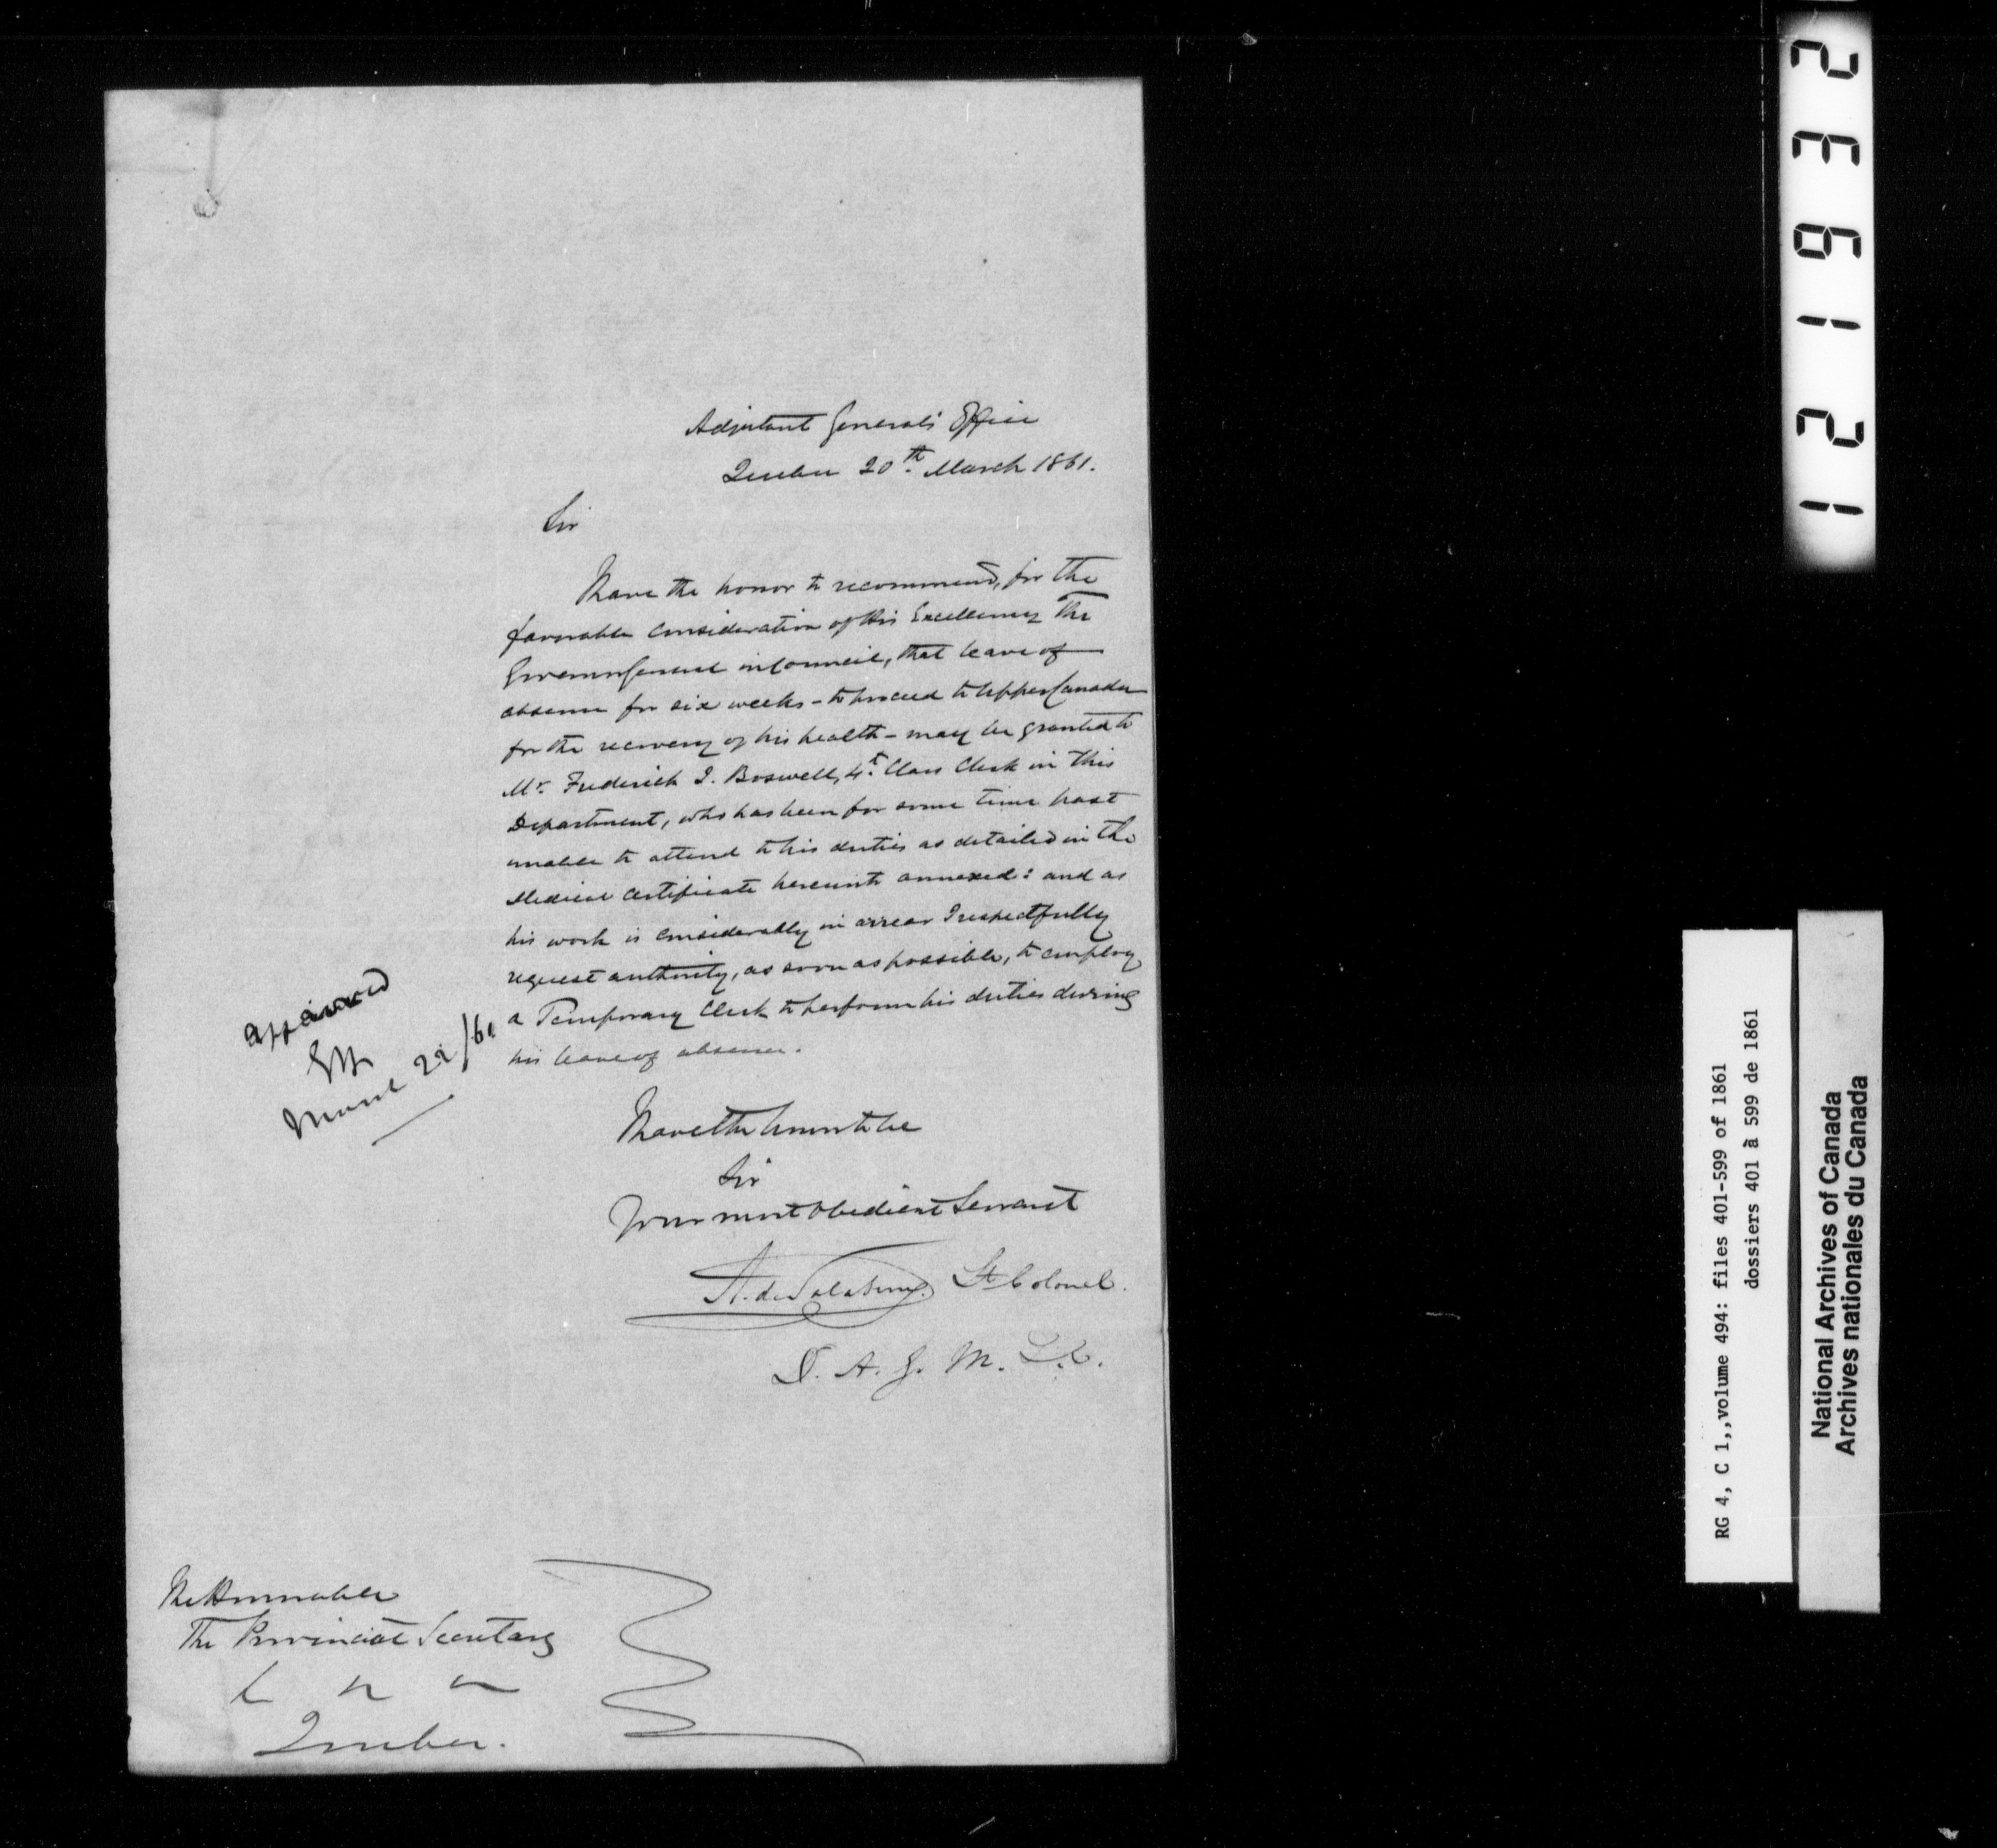 Adjutant General's Office
Quebec 20th March 1861.
Sir
I have the honor to recommend, for the
favorable consideration of His Excellency The
Governor General in Council, that leave of
absence for six weeks - to proceed to Upper Canada
for the recovery of his health - may be granted to
Mr. Frederick J. Boswell, 4th Class Clerk in this
Department, who has been for some time past
unable to attend to his duties as detailed in the
Medical Certificate hereunto annexed: and as
his work is considerably in arrear I respectfully
request authority, as soon as possible, to employ
a Temporary Clerk to perform his duties during
his leave of absence.
Approved
March 22/61
I have the honor to be
Sir
Your most obedient Servant
A. de Salaberry. Lt Colonel.
D. A. G. M. L.C.
The Honorable
The Provincial Secretary
Quebec.
121932
RG 4, C 1,,volume 494: files 401-599 of 1861
dossiers 401 à 599 de 1861
National Archives of Canada
Archives nationales du Canada